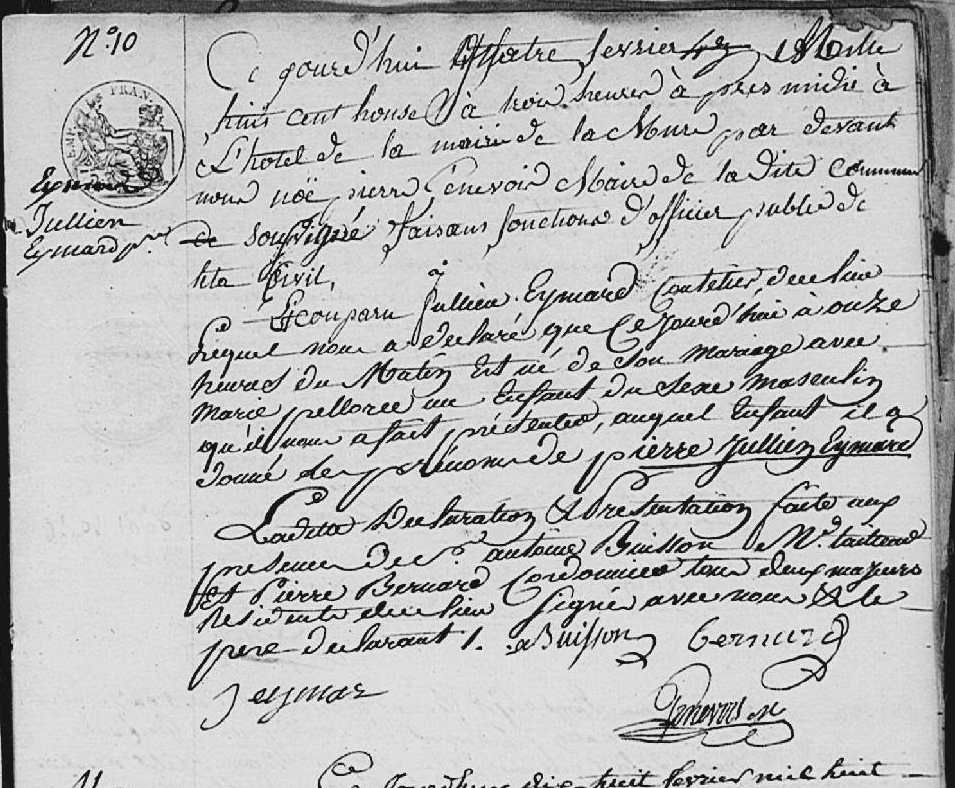 N.º 10
Ce jourd'hui Quatre fevrier 4 Mille
huit cent honse à troix heures à pres midié à
L'hotel de la mairie de la Mure par devant
nous noë pierre Genevois Maire de la dite Commune
EMP FRANÇ
Eymard
Jullien
Eymard p.re
de souſsigné faisant fonctions d'officier public de
lita Civil,
à Comparu Jullien Eymard Coutelier de ce lieu
Lequel nous a declaré que Ce jourd'hui à onze
heures du Matin Est né de Son mariage avec
Marie pellorce un Enfant du Sexe masculin
qu'il nous a fait présenter, auquel Enfant il a
donné les prénoms de pierre Jullien Eymard
Ladite Declaration & Présentation faite aux
presence de S.r antoine Buisson M.d
Et Pierre Bernard Cordonnier tous deux majeurs
residents de ce lieu Signés avec nous & le
pere declarant. aBuisson Bernard
J eymar
Genevois m
11 Ce Jourdhui dix huit fevrier mil huit